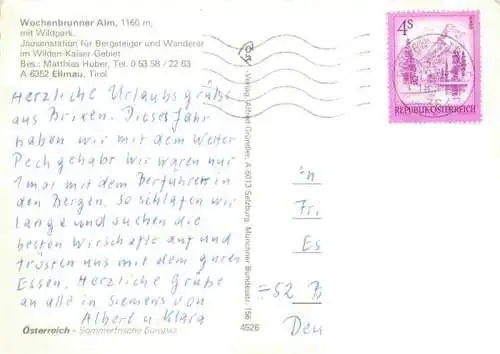 Wochenbrunner Alm, 1160 m,
mit Wildpark.
Jausenstation für Bergsteiger und Wanderer
im Wilden-Kaiser-Gebiet
Bes.: Matthias Huber, Tel. 0 53 58 / 22 63
A 6352 Ellmau, Tirol
Herzliche Urlaubsgrüße
aus Brixen. Dieses Jahr
haben wir mit dem Wetter
Pech gehabt wir waren nur
1 mal mit dem Berführer in
den Bergen. So schlafen wir
lange und suchen die
besten Wirschafte auf und
trösten uns mit dem guten
Essen. Herzliche Grüße
an alle in Siemens von
Albert u Klara
Österreich - Sommerfrische Europas
Verlag Alfred Gründler, A 6013 Salzburg, Münchner Bundesstr. 156
4526
4 S
REPUBLIK ÖSTERREICH
Fr
Es
52